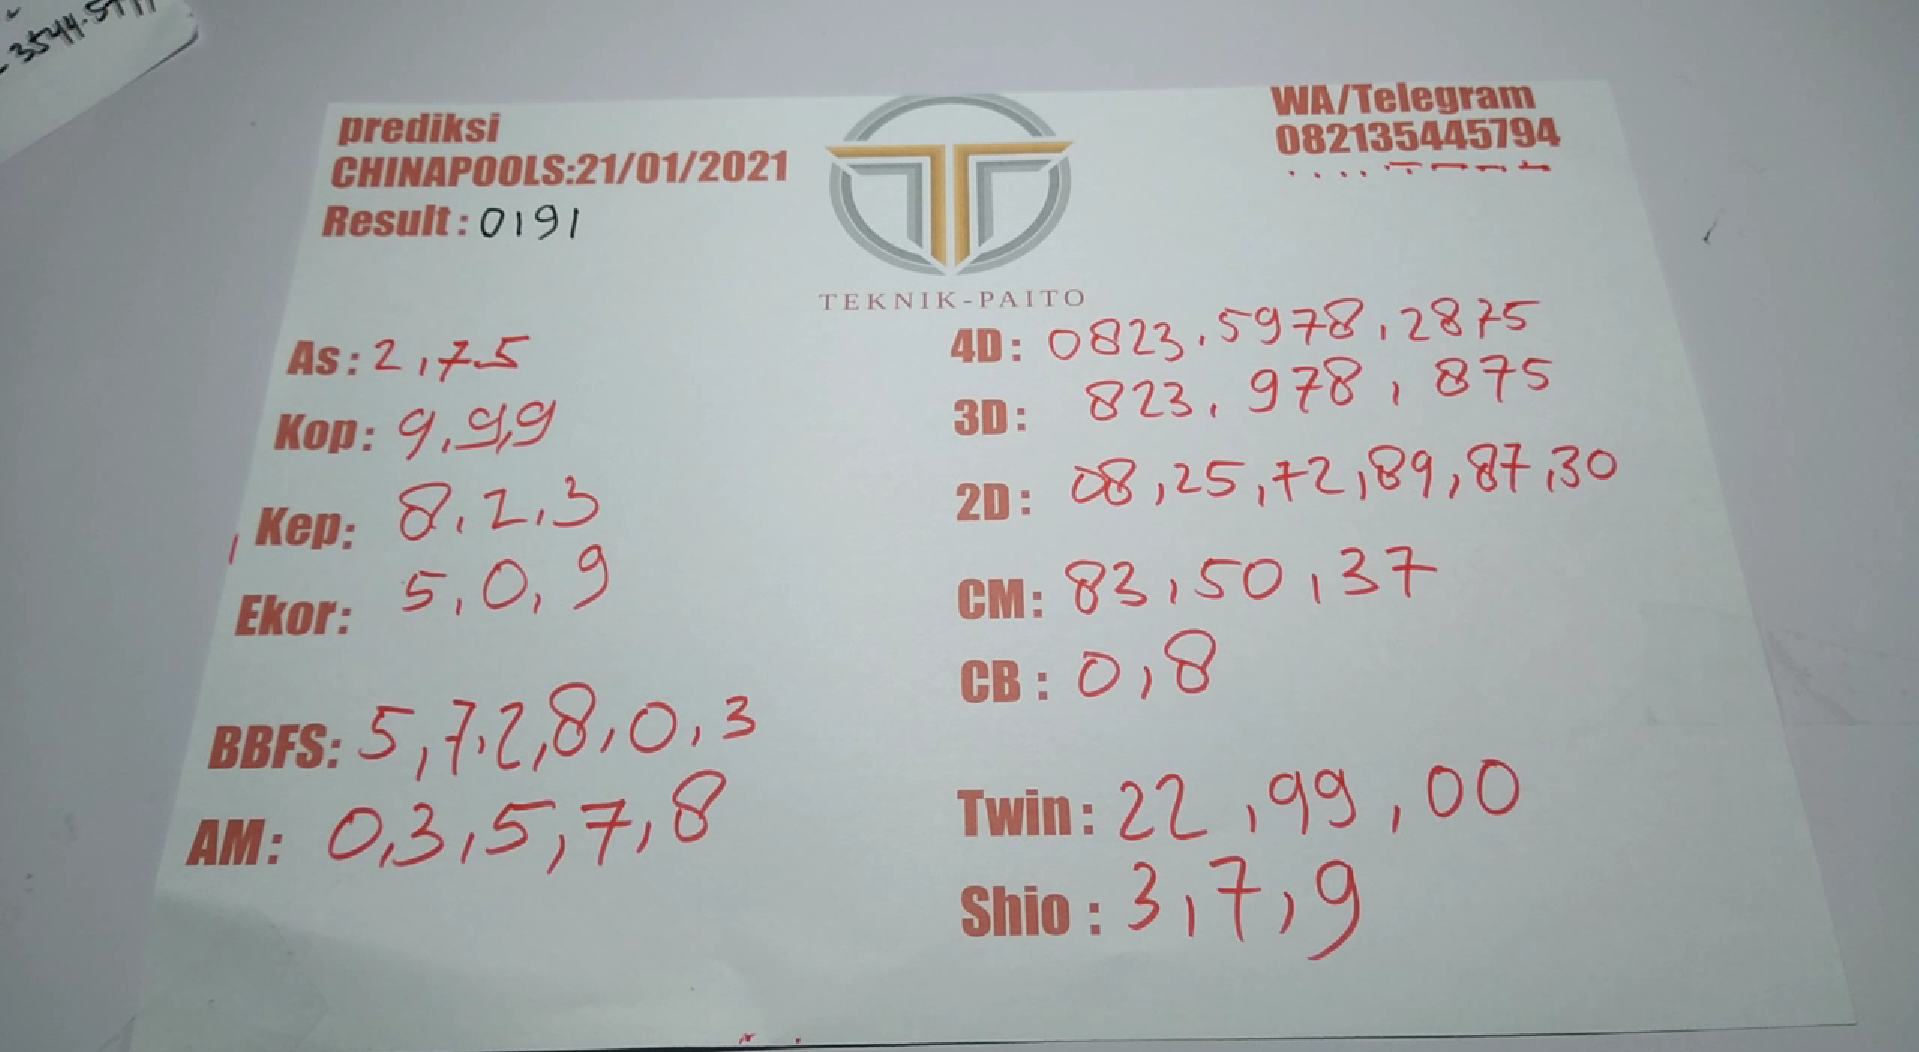 prediksi
CHINAPOOLS:21/01/2021
Result: 0191
WA/Telegram
082135445794
TEKNIK-PAITO
As: 2,7.5
Kop: 9,9,9
Kep: 8,2,3
Ekor: 5,0,9
BBFS: 5,7,2,8,0,3
AM: 0,3,5,7,8
4D: 0823,5978,2875
3D: 823, 978, 875
2D: 08,25,72,89,87,30
CM: 83,50,37
CB: 0,8
Twin: 22,99,00
Shio: 3,7,9